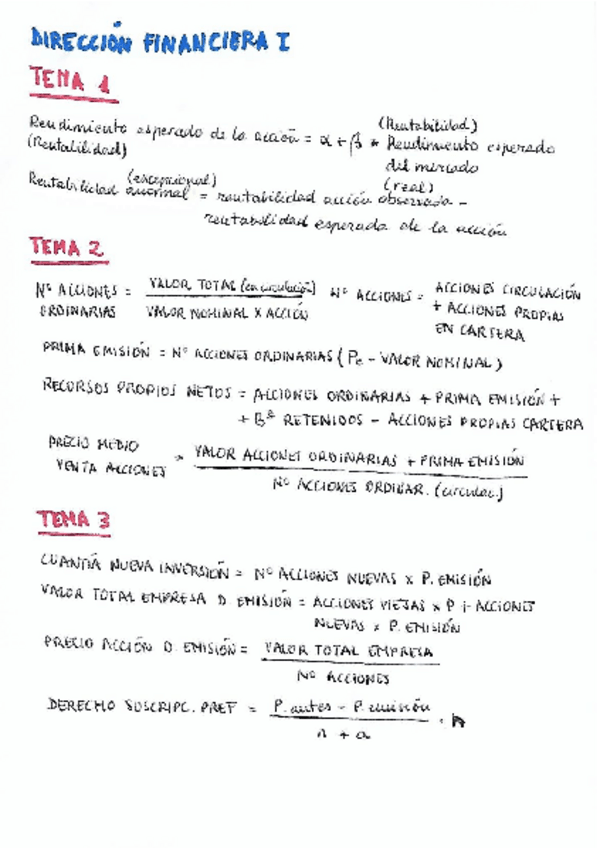 DIRECCIÓN FINANCIERA I
TEMA 1
(Rentabilidad)
Rendimiento esperado de la acción = α + β * Rendimiento esperado
(Rentabilidad) del mercado
(excepcional) (real)
Rentabilidad anormal = rentabilidad acción observada -
rentabilidad esperada de la acción
TEMA 2
Nº ACCIONES ORDINARIAS = VALOR TOTAL (en circulación) / VALOR NOMINAL X ACCIÓN
Nº ACCIONES = ACCIONES CIRCULACIÓN
+ ACCIONES PROPIAS
EN CARTERA
PRIMA EMISIÓN = Nº ACCIONES ORDINARIAS (Pe - VALOR NOMINAL)
RECURSOS PROPIOS NETOS = ACCIONES ORDINARIAS + PRIMA EMISIÓN +
+ Bº RETENIDOS - ACCIONES PROPIAS CARTERA
PRECIO MEDIO VENTA ACCIONES = VALOR ACCIONES ORDINARIAS + PRIMA EMISIÓN / Nº ACCIONES ORDINAR. (circulac.)
TEMA 3
CUANTÍA NUEVA INVERSIÓN = Nº ACCIONES NUEVAS x P. EMISIÓN
VALOR TOTAL EMPRESA D. EMISIÓN = ACCIONES VIEJAS x P + ACCIONES
NUEVAS x P. EMISIÓN
PRECIO ACCIÓN D. EMISIÓN = VALOR TOTAL EMPRESA / Nº ACCIONES
DERECHO SUSCRIPC. PREF = P. antes - P. emisión / n + a · n